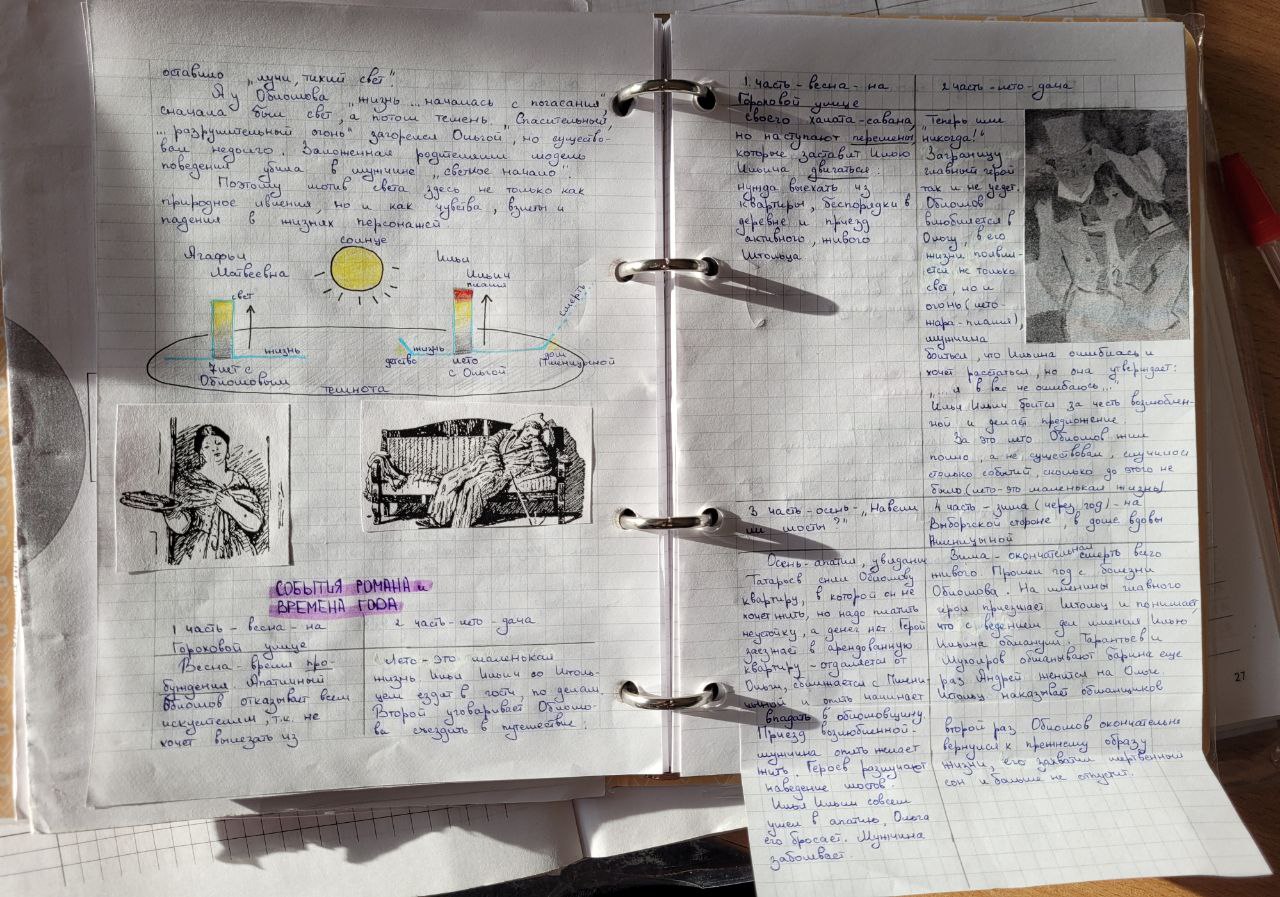 оставило „лучи, тихий свет".
А у Обломова „жизнь ... началась с погасания",
сначала был свет, а потом темень. „Спасительный,
... разрушительный огонь" загорелся Ольгой, но существо-
вал недолго. Заложенная родителями модель
поведения убила в мужчине „светлое начало".
Поэтому мотив света здесь не только как
природное явления, но и как чувства, взлеты и
падения в жизнях персонажей
солнце
Агафьи
Матвеевна
свет
жизнь
7 лет с
Обломовым
Ильи
Ильич
пламя
смерть
детство
жизнь
лето
с Ольгой
дом
Пшеницыной
темнота
СОБЫТИЯ РОМАНА и
ВРЕМЕНА ГОДА
1 часть - весна - на
Гороховой улице
2 часть - лето - дача
Весна - время про-
буждения. Апатичный
Обломов отказывает всем
искусителям, т.к. не
хочет вылезать из
Лето - это маленькая
жизнь Ильи Ильич со Штоль-
цем ездит в гости, по делам.
Второй уговаривает Обломо-
ва съездить в путешествие:
1 часть - весна - на
Гороховой улице
2 часть - лето - дача
своего халата-савана,
но наступают перемены,
которые заставит Илью
Ильича двигаться:
нужда выехать из
квартиры, беспорядки в
деревне и приезд
активного, живого
Штольца
„Теперь или
никогда!"
Заграницу
главный герой
так и не уедет.
Обломов
влюбляется в
Ольгу, в его
жизни появля-
ется не только
свет, но и
огонь (лето-
жара-пламя),
мужчина
боиться, что Ильина ошиблась и
хочет расстаться, но она утверждает:
„... я в вас не ошибаюсь..."
Илья Ильич боится за честь возлюблен-
ной и делает предложение.
За это лето Обломов жил
полно, а не существовал, случилось
столько событий, сколько до этого не
было (лето-это маленькая жизнь).
3 часть - осень - „Навели
ли мосты?"
4 часть - зима (через год) - на
Выборгской стороне, в доме вдовы
Пшеницыной
Осень - апатия, увядание
Татарьев снял Обломову
квартиру, в которой он не
хочет жить, но надо платить
неустойку, а денег нет. Герой
заезжает в арендованную
квартиру - отдаляется от
Ольги, сближается с Пшени-
цыной и опять начинает
впадать в обломовщину.
Приезд возлюбленной-
мужчина опять желает
жить. Героев разлучают
наведение мостов.
Илья Ильич совсем
ушел в апатию, Ольга
его бросает. Мужчина
заболевает.
Зима - окончательная смерть всего
живого Прошел год с болезни
Обломова. На именины главного
героя приезжает Штольц и понимает,
что с ведением дел имения Илью
Ильича обманули. Тарантьев и
Мухояров обманывают барина еще
раз Андрей женится на Ольге.
Штольц наказывает обманщиков
второй раз Обломов окончательно
вернулся к прежнему образу
жизни, его захватил мертвенный
сон и больше не отпустит.
27